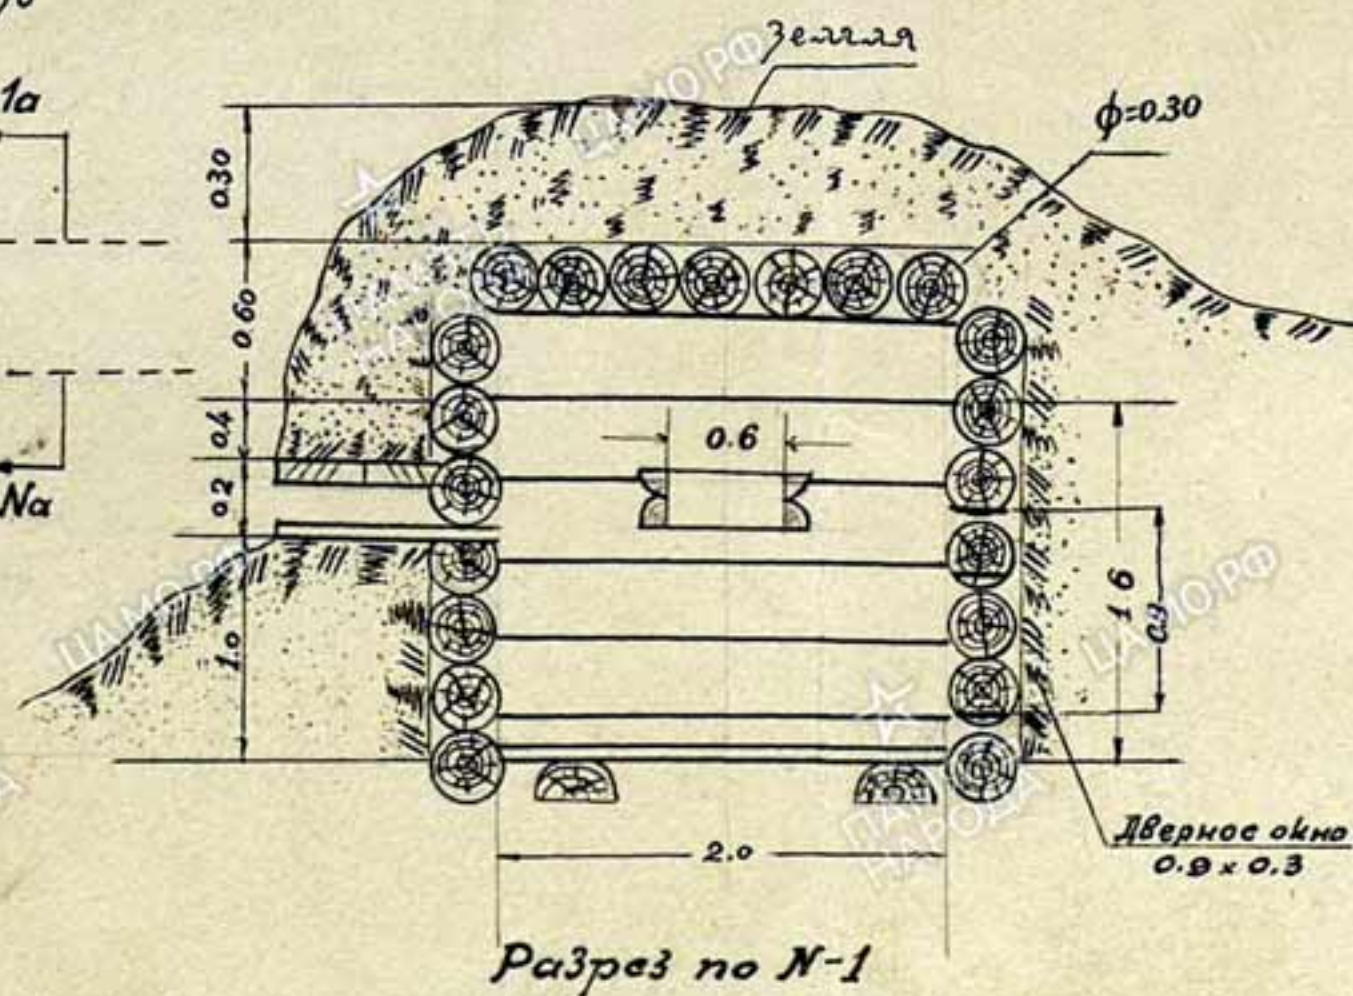 1а
Nа
Земля
ф=0.30
0.30
0.60
0.4
0.2
1.0
0.6
1 6
0.9
2.0
Дверное окно
0.9 x 0.3
Разрез по N-1
ЦАМО.РФ
ЦАМО.РФ
ЦАМО.РФ
НАРОДА